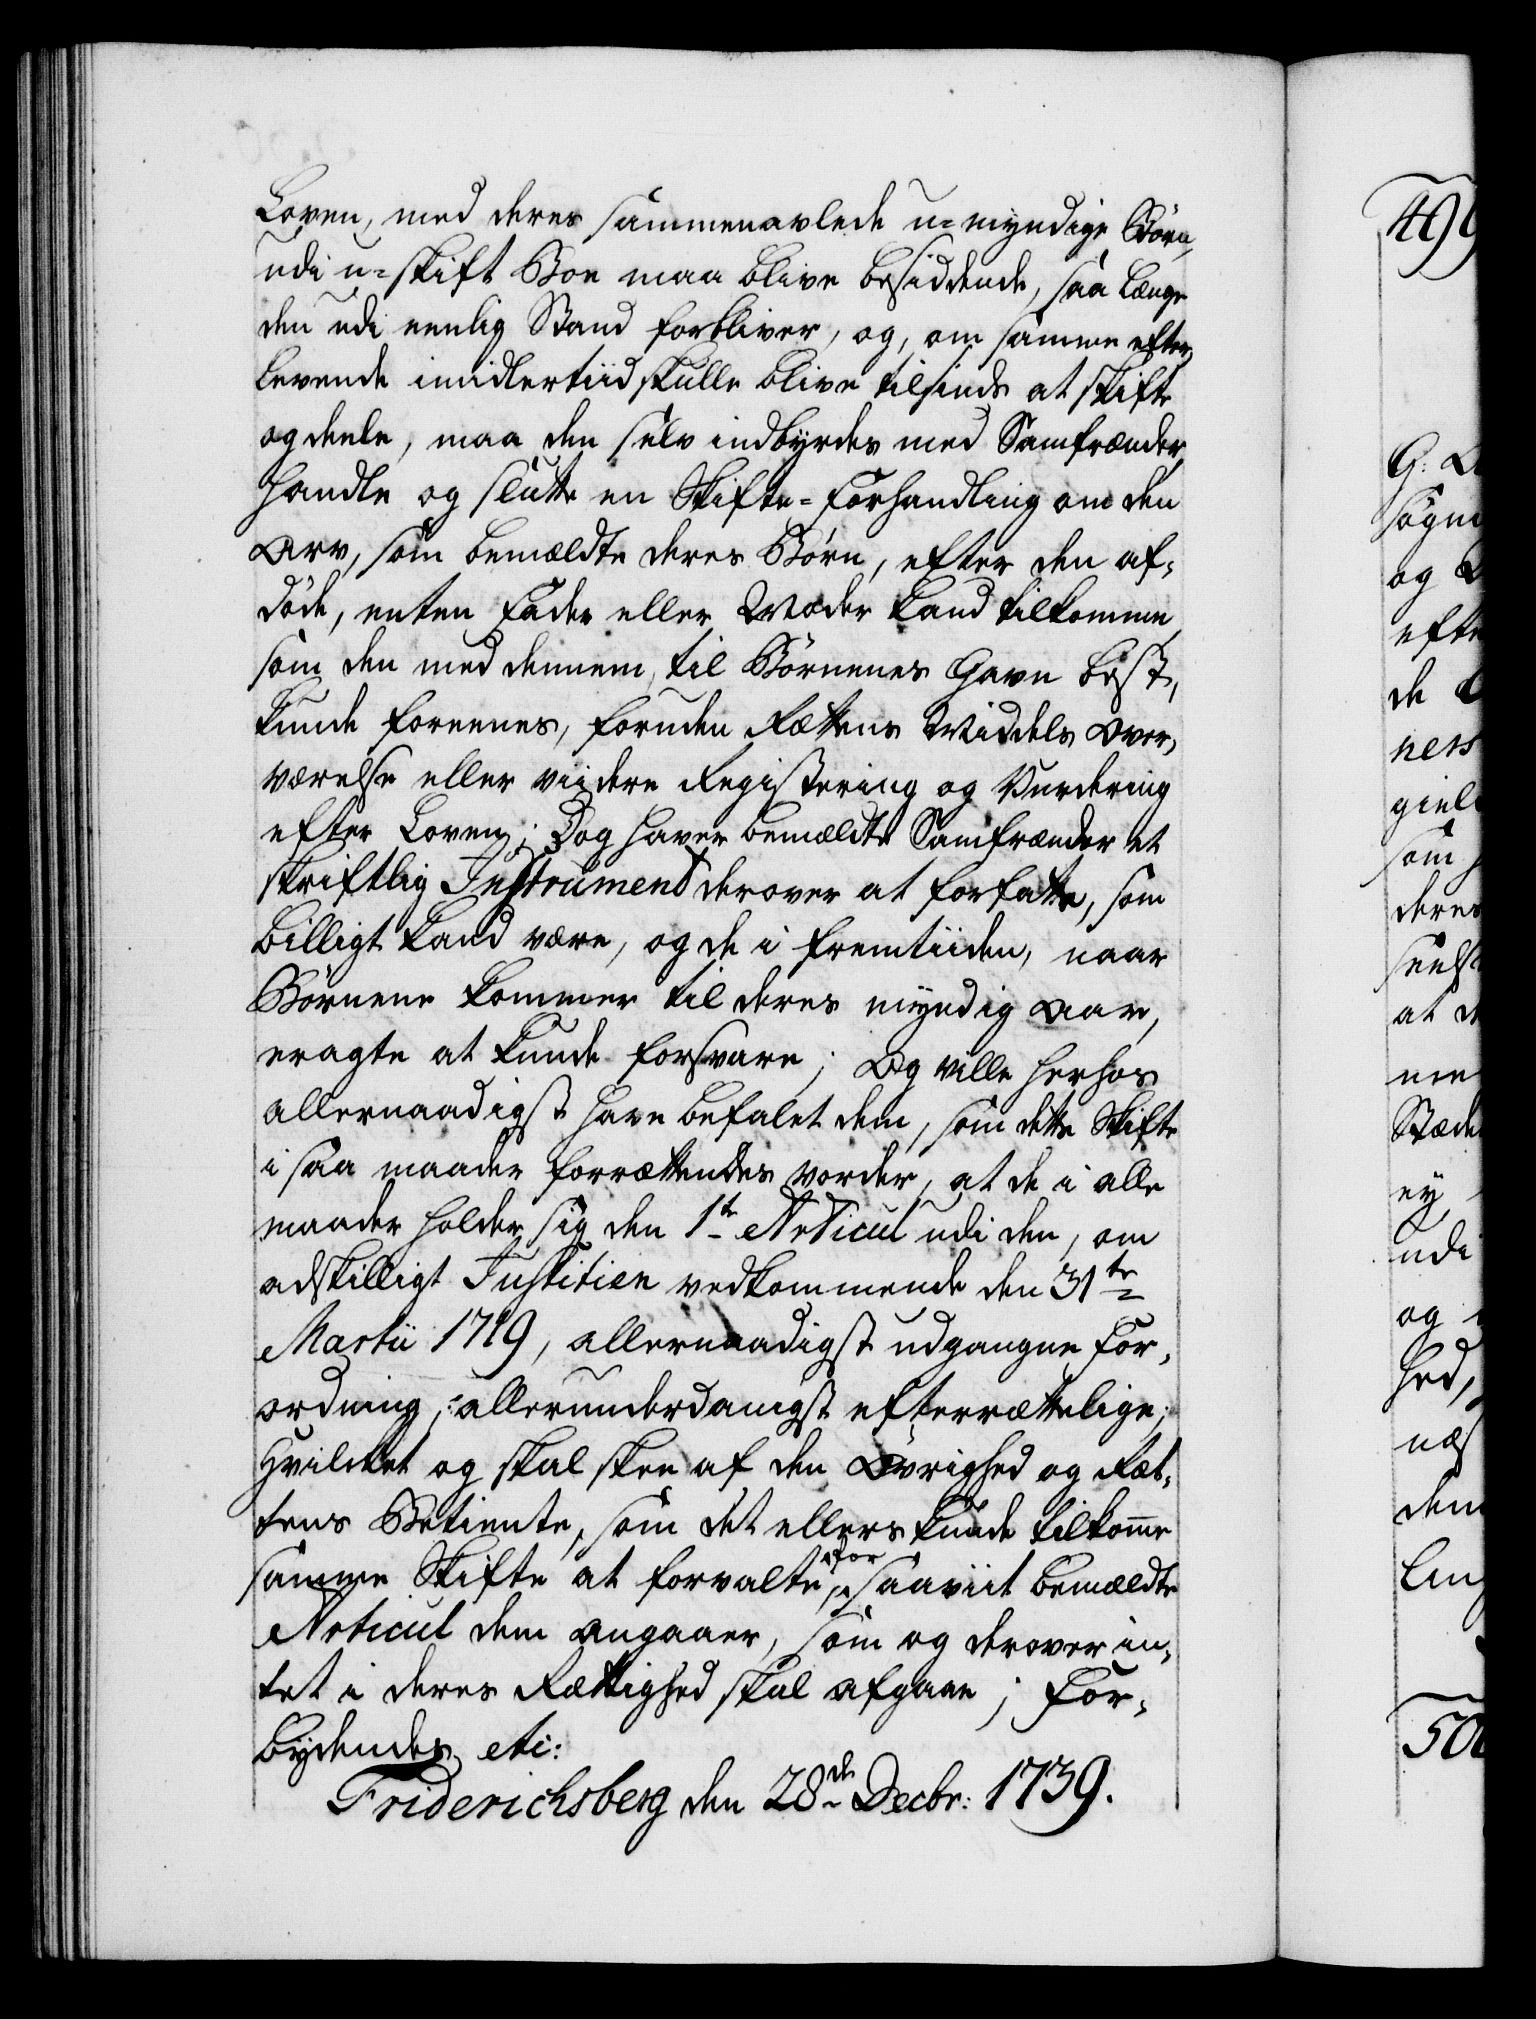 Loven, med deres sammenavlede u-myndige Børn,
udi u-skift Boe maa blive besiddende, saa længe
den udi eenlig Stand forbliver, og, om samme efter-
levende imidlertiid skulle blive tilsinds at skifte
og deele, maa den selv indbyrdes med Samfrænder,
handle og slutte en Skifte-Forhandling om den
Arv, som bemældte deres Børn, efter den af-
døde, enten Fader eller Moder kand tilkomme,
som den med dennem, til Børnenes Gavn best,
kunde foreenes, foruden Rættens Middels Over-
værelse eller viidere Registering og Vurdering
efter Loven; Dog haver bemældte Samfrænder et
skriftlig Instrument derover at forfatte, som
billigt kand være, og de i fremtiiden, naar
Børnene kommer til deres myndig Aar,
eragte at kunde forsvare; Og ville herhos
allernaadigst have befalet dem, som dette Skifte
i saa maader forrættendes vorder, at de i alle
maader holder sig den 1te Articul udi den, om
adskilligt Justitien vedkommende den 31te
Martii 1719, allernaadigst udgangne For-
ordning, allerunderdanigst efterrættelige;
Hvilcket og skal skee af den Øvrighed og Ræt-
tens Betiente, som det ellers kunde tilkomme
samme Skifte at forvalte, for saaviit bemældte
Articul dem angaaer, som og derover in-
tet i deres Rættighed skal afgaae; For-
bydendes etc:
Friderichsberg den 28de Decbr: 1739.
499
G:
og
efte
de
ness
giel
som
deres
at
me
Stæde
ey
udi
og
hed,
dem
500